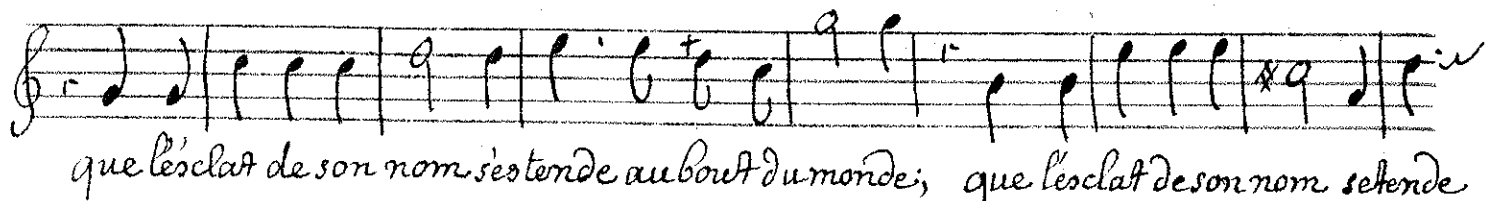 que l'ésclat de son nom s'estende au bout du monde; que l'ésclat de son nom setende